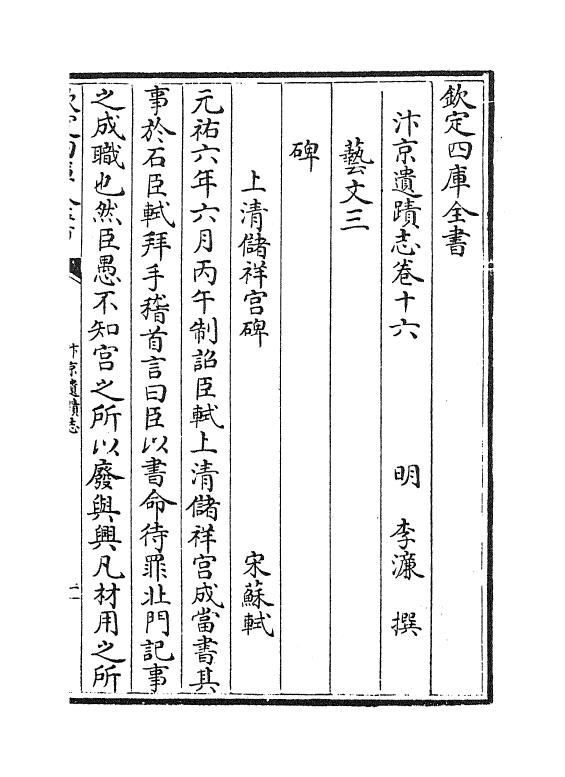 欽定四庫全書
汴京遺蹟志卷十六　明　李濂　撰
藝文三
碑
上清儲祥宮碑　宋蘇軾
元祐六年六月丙午制詔臣軾上清儲祥宮成當書其
事於石臣軾拜手稽首言曰臣以書命待罪北門記事
之成職也然臣愚不知宮之所以廢與興凡材用之所
汴京遺蹟志